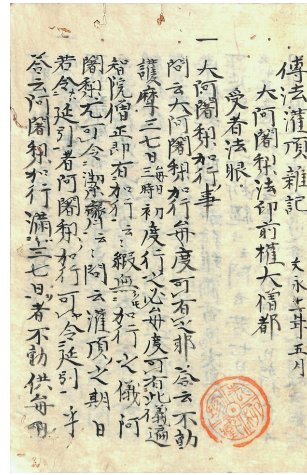 傳法灌頂雜記
大永 年五月
大阿闍梨法印前権大僧都
受者法眼
一大阿闍梨加行事
問云大阿闍梨加行毎度可有之耶 答云不動
護摩三七日毎日三時初度行之必毎度可有此儀遍
智院僧正即有加行云々縦無加行之儀阿
闍梨尤可令潔齋云々問云灌頂之期日
若令延引者阿闍梨加行可令延引乎
答云阿闍梨加行満三七日者不動供毎日